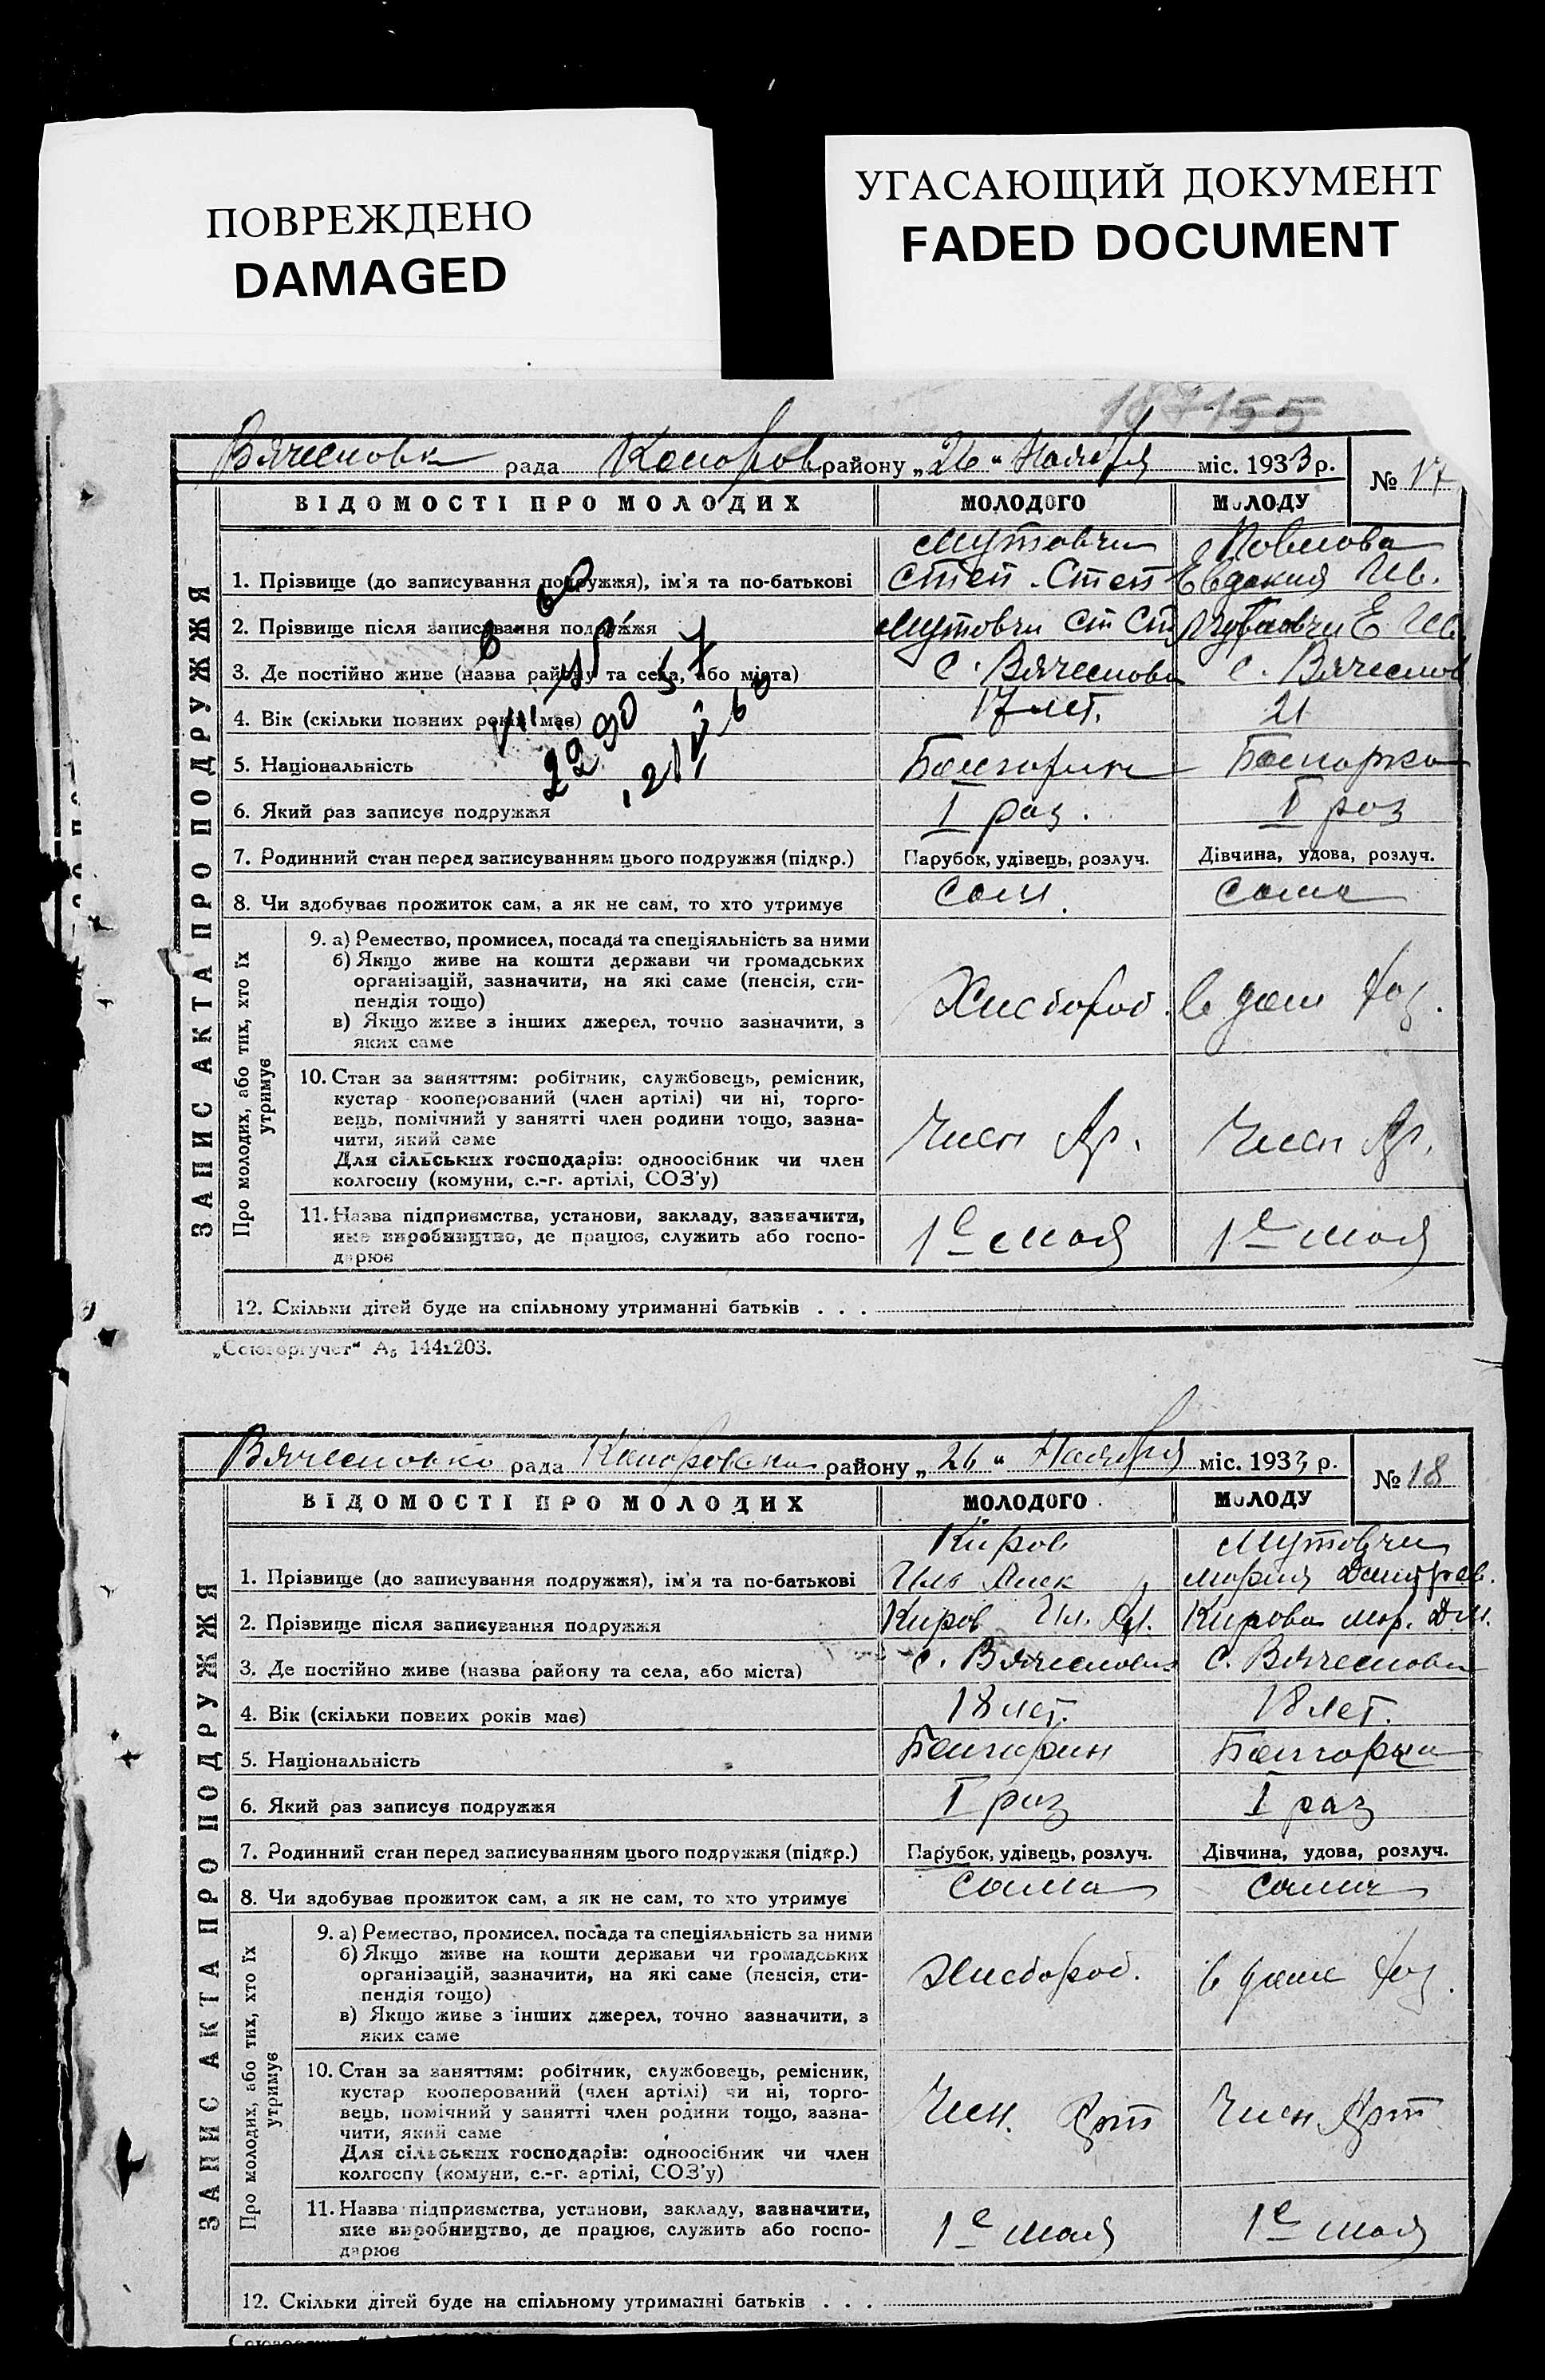 ПОВРЕЖДЕНО
DAMAGED
УГАСАЮЩИЙ ДОКУМЕНТ
FADED DOCUMENT
рада району „26“ Ноября міс. 1933 р. № 17
ВІДОМОСТІ ПРО МОЛОДИХ МОЛОДОГО МОЛОДУ
ЗАПИС АКТА ПРО ПОДРУЖЖЯ
Мутовчи
1. Прізвище (до записування подружжя), ім'я та по-батькові Степ. Степ Евдокия Ив.
2. Прізвище після записування подружжя Мутовчи Ст Ст Мутовчи Е Ив.
3. Де постійно живе (назва району та села, або міста) с. Вячесловка с. Вячеслов
4. Вік (скільки повних років має) 17 лет. 21
5. Національність Болгарин Болгарка
6. Який раз записує подружжя I раз. I раз
7. Родинний стан перед записуванням цього подружжя (підкр.) Парубок, удівець, розлуч. Дівчина, удова, розлуч.
8. Чи здобуває прожиток сам, а як не сам, то хто утримує Сам. Сама
Про молодих, або тих, хто їх
утримує
9. а) Ремество, промисел, посада та спеціяльність за ними
б) Якщо живе на кошти держави чи громадських
організацій, зазначити, на які саме (пенсія, сти-
пендія тощо) Хлебороб. в дом хоз.
в) Якщо живе з інших джерел, точно зазначити, з
яких саме
10. Стан за заняттям: робітник, службовець, ремісник,
кустар кооперований (член артілі) чи ні, торго-
вець, помічний у занятті член родини тощо, зазна-
чити, який саме Член Ар. Член Ар.
Для сільських господарів: одноосібник чи член
колгоспу (комуни, с.-г. артілі, СОЗ'у)
11. Назва підприємства, установи, закладу, зазначити,
яке виробництво, де працює, служить або госпо- 1е мая 1е мая
дарює
12. Скільки дітей буде на спільному утриманні батьків . . .
„Союзоргучет“ А5 144х203.
Вячесловка рада району „26“ Ноября міс. 1933 р. № 18
ВІДОМОСТІ ПРО МОЛОДИХ МОЛОДОГО МОЛОДУ
ЗАПИС АКТА ПРО ПОДРУЖЖЯ
Киров Мутовчи
1. Прізвище (до записування подружжя), ім'я та по-батькові Мария Дмитрев.
2. Прізвище після записування подружжя Киров Ил. Кирова Мар. Дм.
3. Де постійно живе (назва району та села, або міста) с. Вячесловка с. Вячесловка
4. Вік (скільки повних років має) 18 лет. 18 лет.
5. Національність Болгарин Болгарка
6. Який раз записує подружжя I раз I раз
7. Родинний стан перед записуванням цього подружжя (підкр.) Парубок, удівець, розлуч. Дівчина, удова, розлуч.
8. Чи здобуває прожиток сам, а як не сам, то хто утримує Сама Сама
Про молодих, або тих, хто їх
утримує
9. а) Ремество, промисел, посада та спеціяльність за ними
б) Якщо живе на кошти держави чи громадських
організацій, зазначити, на які саме (пенсія, сти- Хлебороб. в доме хоз.
пендія тощо)
в) Якщо живе з інших джерел, точно зазначити, з
яких саме
10. Стан за заняттям: робітник, службовець, ремісник,
кустар кооперований (член артілі) чи ні, торго-
вець, помічний у занятті член родини тощо, зазна- Член. Арт Член Арт
чити, який саме
Для сільських господарів: одноосібник чи член
колгоспу (комуни, с.-г. артілі, СОЗ'у)
11. Назва підприємства, установи, закладу, зазначити,
яке виробництво, де працює, служить або госпо- 1е мая 1е мая
дарює
12. Скільки дітей буде на спільному утриманні батьків . . .